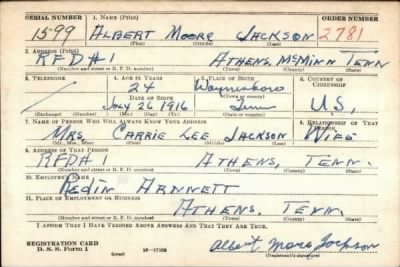 SERIAL NUMBER 1. NAME (Print) ORDER NUMBER
1599 ALBERT MOORE JACKSON 2781
(First) (Middle) (Last)
2. ADDRESS (Print)
RFD#1 ATHENS, McMINN TENN
(Number and street or R. F. D. number) (Town) (County) (State)
3. TELEPHONE 4. AGE IN YEARS 5. PLACE OF BIRTH 6. COUNTRY OF CITIZENSHIP
24 Waynesboro
DATE OF BIRTH (Town or county)
JULY 26 1916 Tenn U.S.
(Mo.) (Day) (Yr.) (State or country)
7. NAME OF PERSON WHO WILL ALWAYS KNOW YOUR ADDRESS 8. RELATIONSHIP OF THAT PERSON
MRS. CARRIE LEE JACKSON WIFE
(Mr., Mrs., Miss) (First) (Middle) (Last)
9. ADDRESS OF THAT PERSON
RFD#1 ATHENS, TENN.
(Number and street or R. F. D. number) (Town) (County) (State)
10. EMPLOYER'S NAME
ARNNETT
11. PLACE OF EMPLOYMENT OR BUSINESS
ATHENS, TENN.
(Number and street or R. F. D. number) (Town) (County) (State)
I AFFIRM THAT I HAVE VERIFIED ABOVE ANSWERS AND THAT THEY ARE TRUE.
REGISTRATION CARD
D. S. S. Form 1 (over) 16—17105 Albert Moore Jackson
(Registrant's signature)